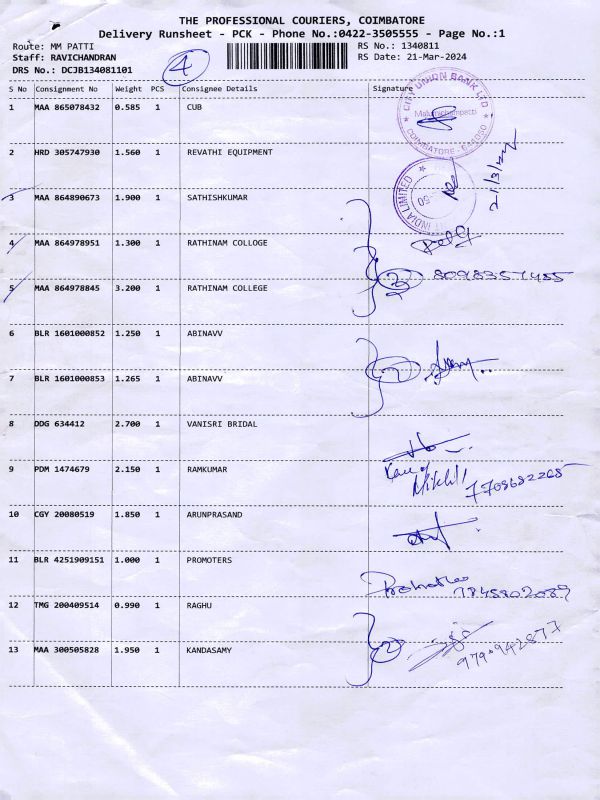 THE PROFESSIONAL COURIERS, COIMBATORE
Delivery Runsheet - PCK - Phone No.:0422-3505555 - Page No.:1
Route: MM PATTI RS No.: 1340811
Staff: RAVICHANDRAN RS Date: 21-Mar-2024
DRS No.: DCJB134081101
4
S No Consignment No Weight PCS Consignee Details Signature
1 MAA 865078432 0.585 1 CUB
CITY UNION BANK LTD
Malumichampatti
COIMBATORE - 641050
2 HRD 305747930 1.560 1 REVATHI EQUIPMENT
INDIA LIMITED
21/3/24
3 MAA 864890673 1.900 1 SATHISHKUMAR
4 MAA 864978951 1.300 1 RATHINAM COLLOGE
5 MAA 864978845 3.200 1 RATHINAM COLLEGE
3 8098357455
6 BLR 1601000852 1.250 1 ABINAVV
7 BLR 1601000853 1.265 1 ABINAVV
2
8 DDG 634412 2.700 1 VANISRI BRIDAL
9 PDM 1474679 2.150 1 RAMKUMAR
7708682265
10 CGY 20080519 1.850 1 ARUNPRASAND
11 BLR 4251909151 1.000 1 PROMOTERS
12 TMG 200409514 0.990 1 RAGHU
13 MAA 300505828 1.950 1 KANDASAMY
2